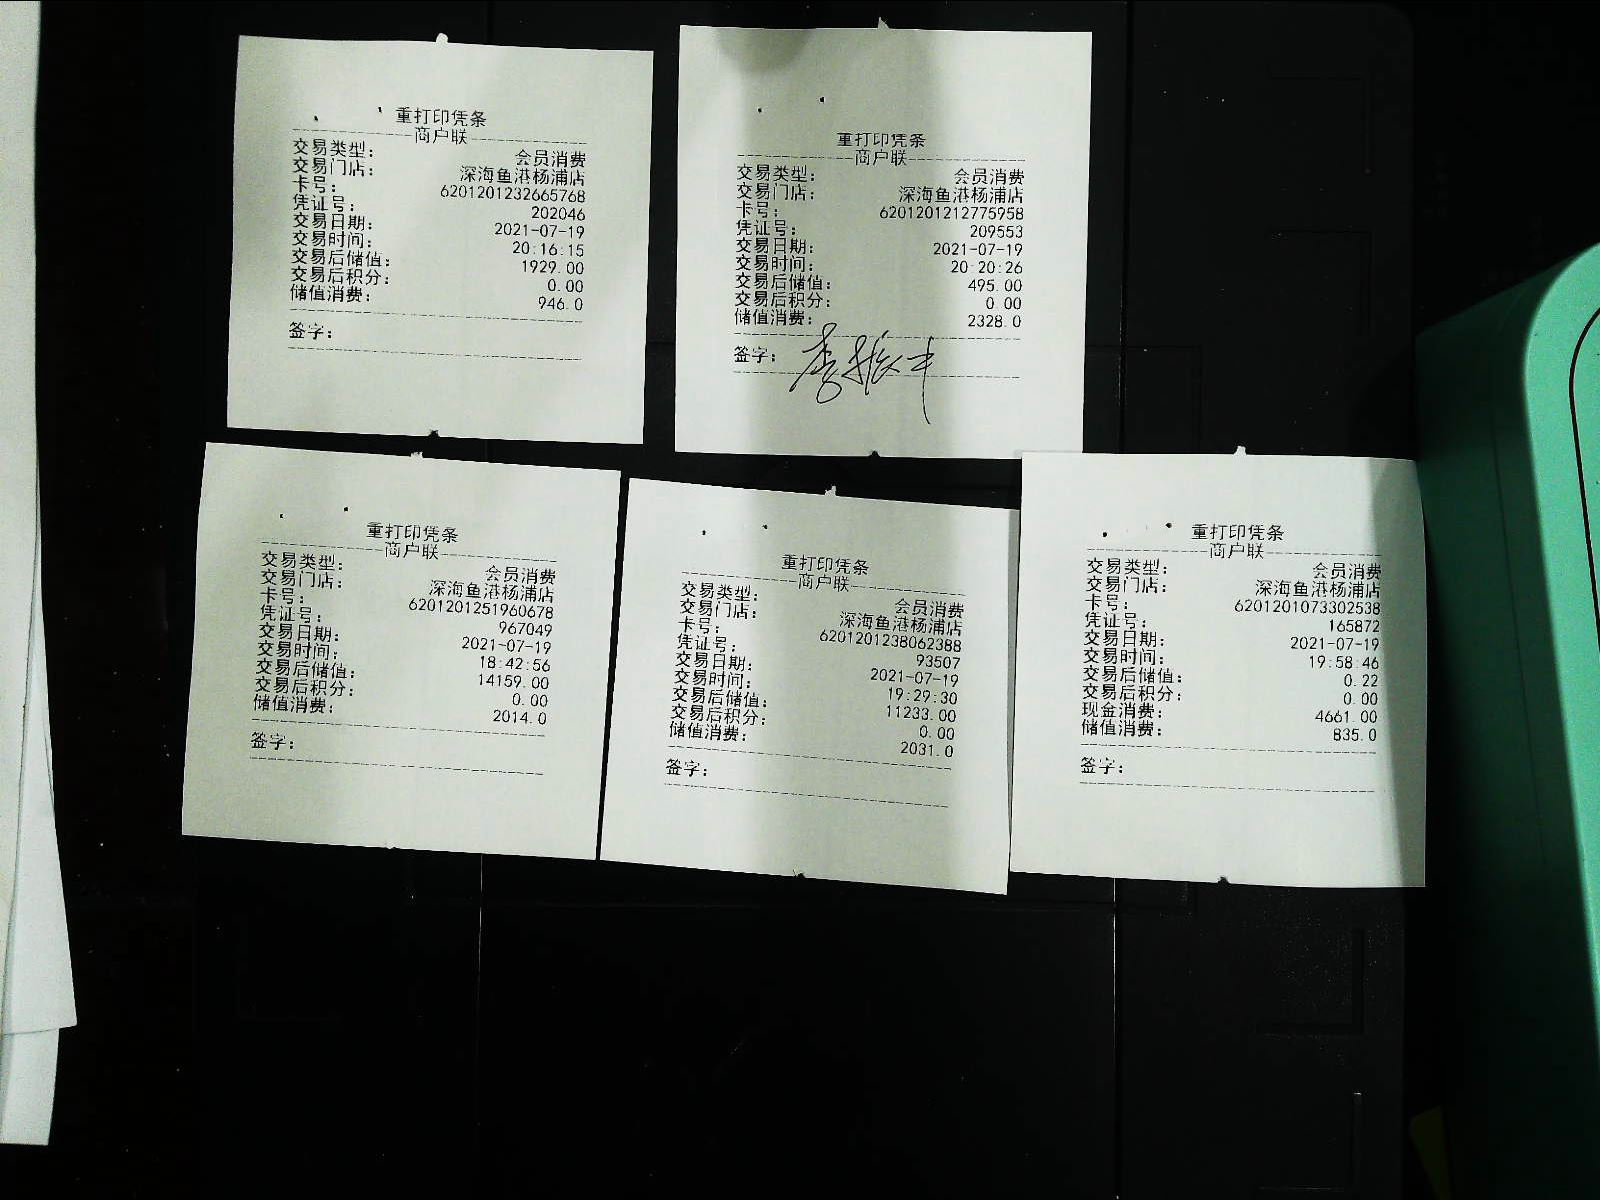 重打印凭条
商户联
交易类型: 会员消费
交易门店: 深海鱼港杨浦店
卡号: 6201201232665768
凭证号: 202046
交易日期: 2021-07-19
交易时间: 20:16:15
交易后储值: 1929.00
交易后积分: 0.00
储值消费: 946.0
签字:
重打印凭条
商户联
交易类型: 会员消费
交易门店: 深海鱼港杨浦店
卡号: 6201201212775958
凭证号: 209553
交易日期: 2021-07-19
交易时间: 20:20:26
交易后储值: 495.00
交易后积分: 0.00
储值消费: 2328.0
签字:
重打印凭条
商户联
交易类型: 会员消费
交易门店: 深海鱼港杨浦店
卡号: 6201201251960678
凭证号: 967049
交易日期: 2021-07-19
交易时间: 18:42:56
交易后储值: 14159.00
交易后积分: 0.00
储值消费: 2014.0
签字:
重打印凭条
商户联
交易类型: 会员消费
交易门店: 深海鱼港杨浦店
卡号: 6201201238062388
凭证号: 93507
交易日期: 2021-07-19
交易时间: 19:29:30
交易后储值: 11233.00
交易后积分: 0.00
储值消费: 2031.0
签字:
重打印凭条
商户联
交易类型: 会员消费
交易门店: 深海鱼港杨浦店
卡号: 6201201073302538
凭证号: 165872
交易日期: 2021-07-19
交易时间: 19:58:46
交易后储值: 0.22
交易后积分: 0.00
现金消费: 4661.00
储值消费: 835.0
签字: